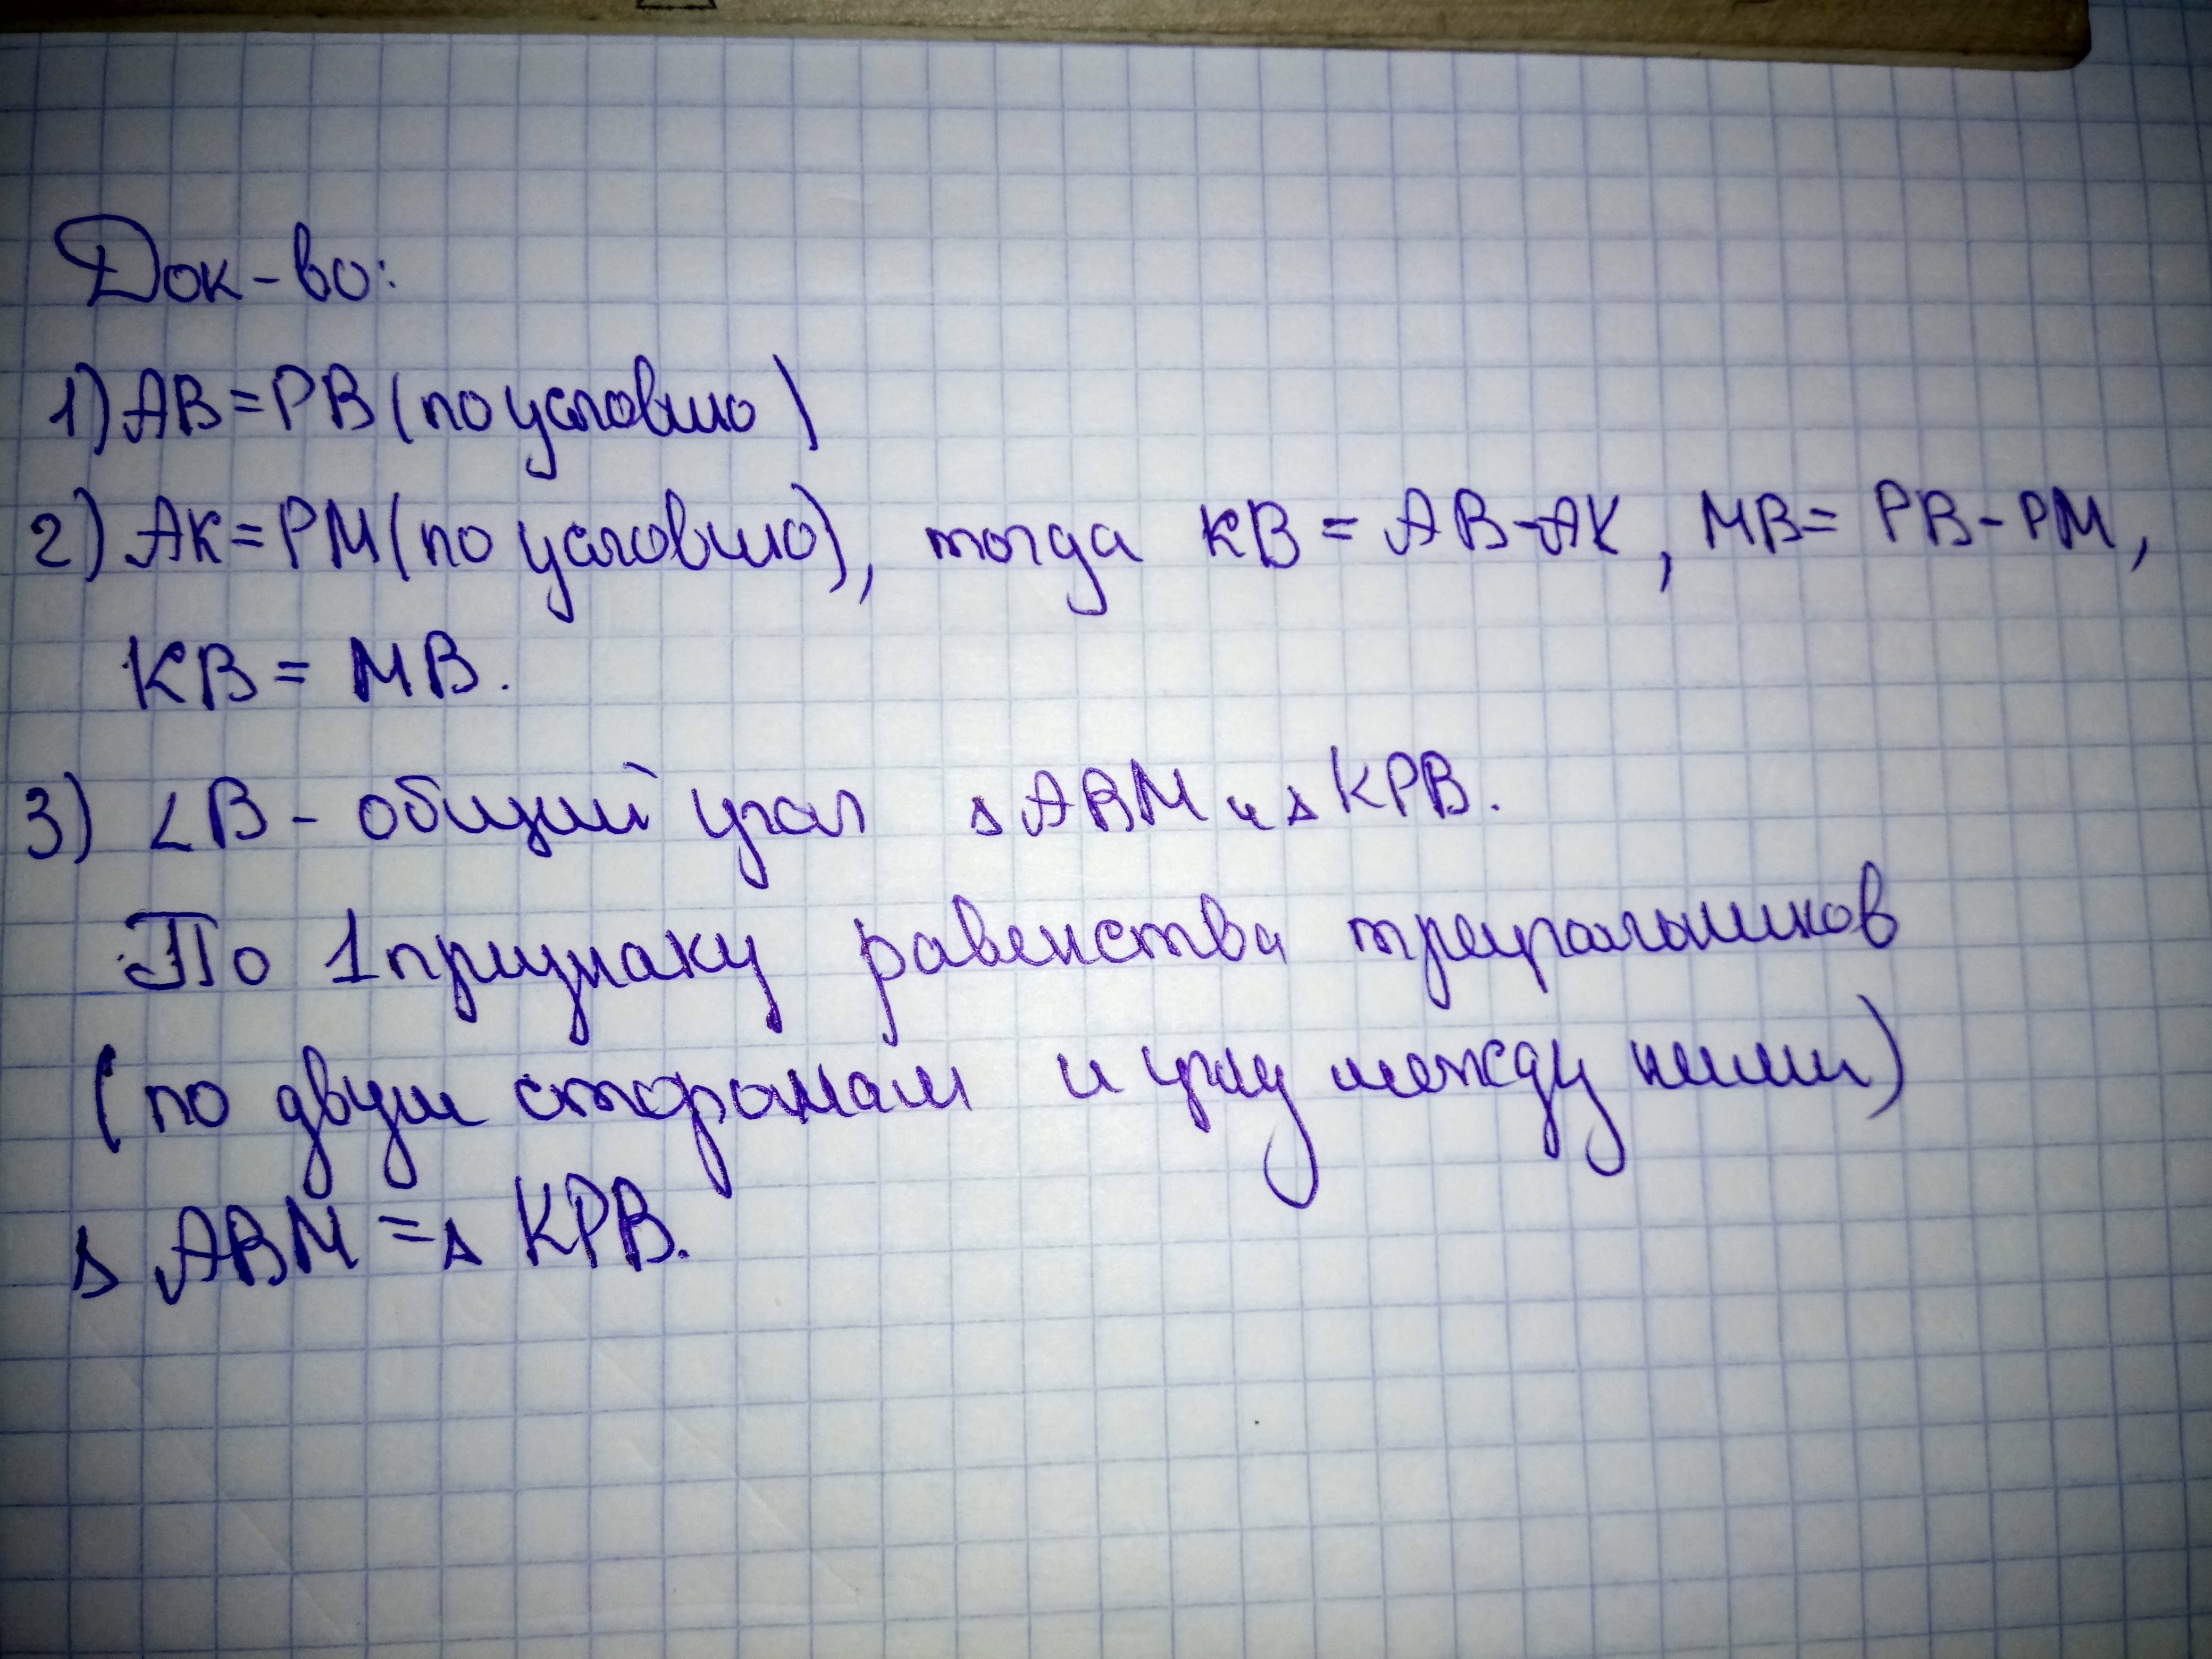 Док-во:
1) AB=PB (по условию)
2) AK=PM (по условию), тогда KB = AB-AK, MB= PB-PM,
KB = MB.
3) ∠B - общий угол ΔABM и ΔKPB.
По 1 признаку равенства треугольников
(по двум сторонам и углу между ними)
Δ ABM = Δ KPB.